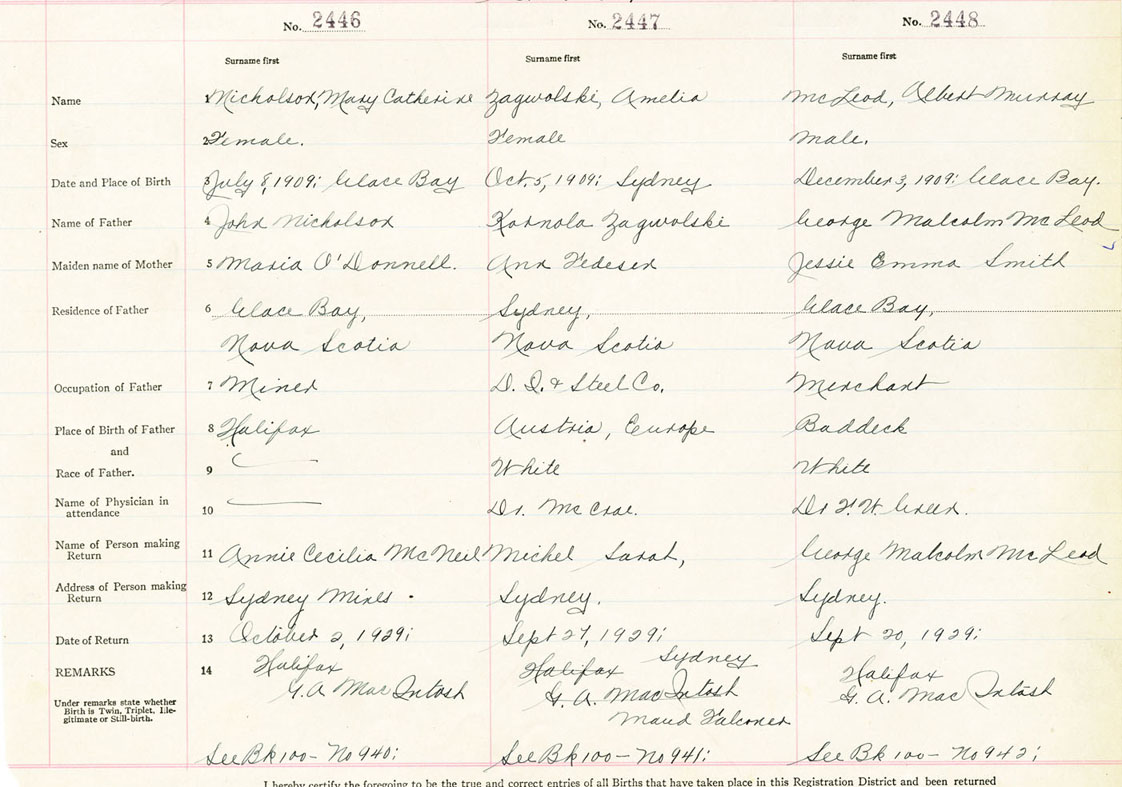 No. 2446 No. 2447 No. 2448
Surname first Surname first Surname first
Name 1 Nicholson, Mary Catherine Zagwolski, Amelia McLeod, Albert Murray
Sex 2 Female. Female Male.
Date and Place of Birth 3 July 8, 1909: Glace Bay Oct. 5, 1909: Sydney December 3, 1909: Glace Bay.
Name of Father 4 John Nicholson Kornola Zagwolski George Malcolm McLeod
Maiden name of Mother 5 Maria O'Donnell. Ann Fedesen Jessie Emma Smith
Residence of Father 6 Glace Bay, Sydney, Glace Bay,
Nova Scotia Nova Scotia Nova Scotia
Occupation of Father 7 Miner D. I. & Steel Co. Merchant
Place of Birth of Father 8 Halifax Austria, Europe Baddeck
and
Race of Father. 9 White White
Name of Physician in
attendance 10 Dr. McCrae. Dr F. W. Green.
Name of Person making
Return 11 Annie Cecilia McNeil Michel Sarah, George Malcolm McLeod
Address of Person making
Return 12 Sydney Mines. Sydney. Sydney.
Date of Return 13 October 2, 1929: Sept 27, 1929: Sept 20, 1929:
REMARKS 14 Halifax Halifax Sydney Halifax
G. A. MacIntosh G. A. MacIntosh G. A. MacIntosh
Under remarks state whether
Birth is Twin, Triplet, Ille-
gitimate or Still-birth.
Maud Falconer
See Bk 100 - No 940: See Bk 100 - No 941: See Bk 100 - No 942:
I hereby certify the foregoing to be the true and correct entries of all Births that have taken place in this Registration District and been returned